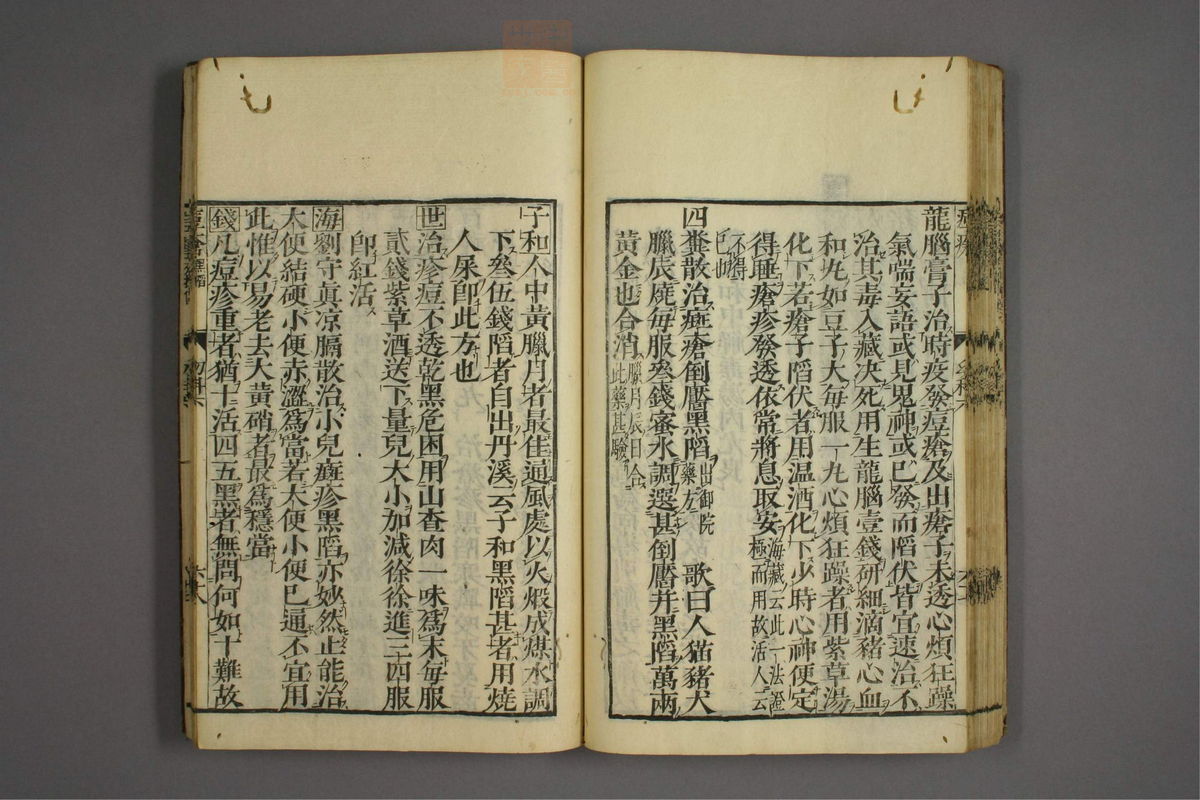 龍腦膏子治時疫發發痘瘡及出瘡子未透心煩狂躁
氣喘妄語或見鬼神或已發而陷伏皆宜速治不
治其毒入藏決死用生龍腦壹錢研細滴豬心血
和丸如豆子大每服一丸心煩狂躁者用紫草湯
化下若瘡子陷伏者用温酒化下少時心神便定
得睡瘡疹發透依常將息取安海藏云此一法證極而用故活人云
不得已而
四糞散治癍瘡倒靨黑陷出御院藥方 歌曰人猫豬犬
臘辰燒每服叁錢蜜水調選甚倒靨并黑陷萬兩
黃金也合消臘月辰日合此藥甚驗
子和人中黃臘月者最佳逼風處以火煅成煤水調
下叁伍錢陷者自出丹溪云子和黑陷甚者用燒
人屎卽此方也
世治疹痘不透乾黑危困用山査肉一味爲末每服
貳錢紫草酒送下量兒大小加減徐徐進三四服
卽紅活
海劉守真凉膈散治小兒癍疹黑陷亦妙然止能治
大便結硬小便赤澀爲當若大便小便已通不宜用
此惟以易老去大黃硝者最爲穩當
錢凡痘疹重者猶十活四五黑者無問何如十難故